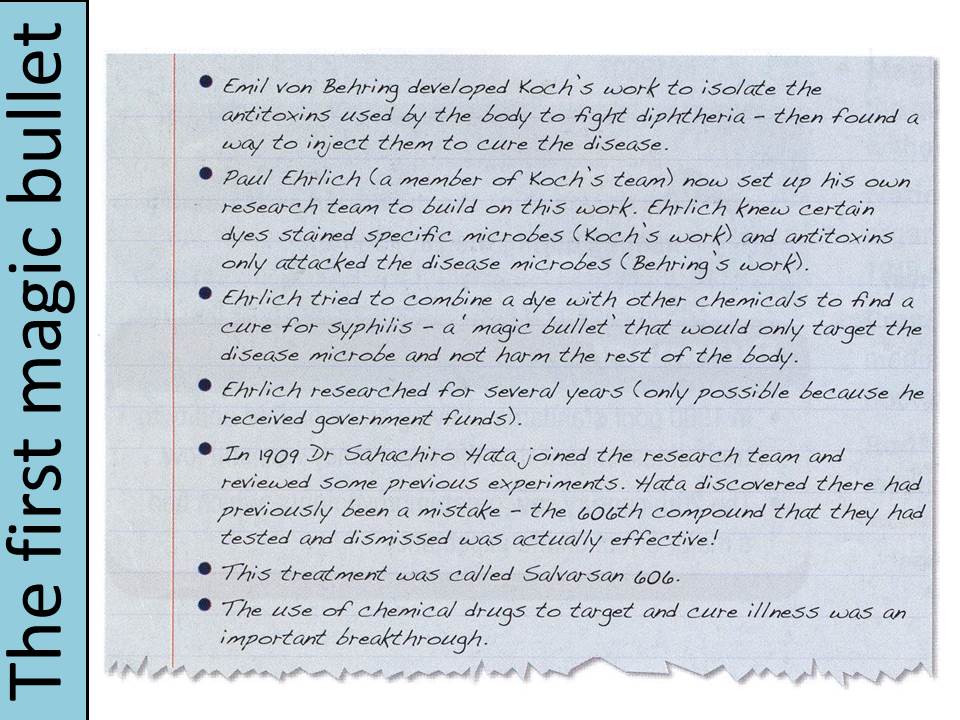 The first magic bullet
• Emil von Behring developed Koch's work to isolate the
antitoxins used by the body to fight diphtheria – then found a
way to inject them to cure the disease.
• Paul Ehrlich (a member of Koch's team) now set up his own
research team to build on this work. Ehrlich knew certain
dyes stained specific microbes (Koch's work) and antitoxins
only attacked the disease microbes (Behring's work).
• Ehrlich tried to combine a dye with other chemicals to find a
cure for syphilis – a 'magic bullet' that would only target the
disease microbe and not harm the rest of the body.
• Ehrlich researched for several years (only possible because he
received government funds).
• In 1909 Dr Sahachiro Hata joined the research team and
reviewed some previous experiments. Hata discovered there had
previously been a mistake – the 606th compound that they had
tested and dismissed was actually effective!
• This treatment was called Salvarsan 606.
• The use of chemical drugs to target and cure illness was an
important breakthrough.